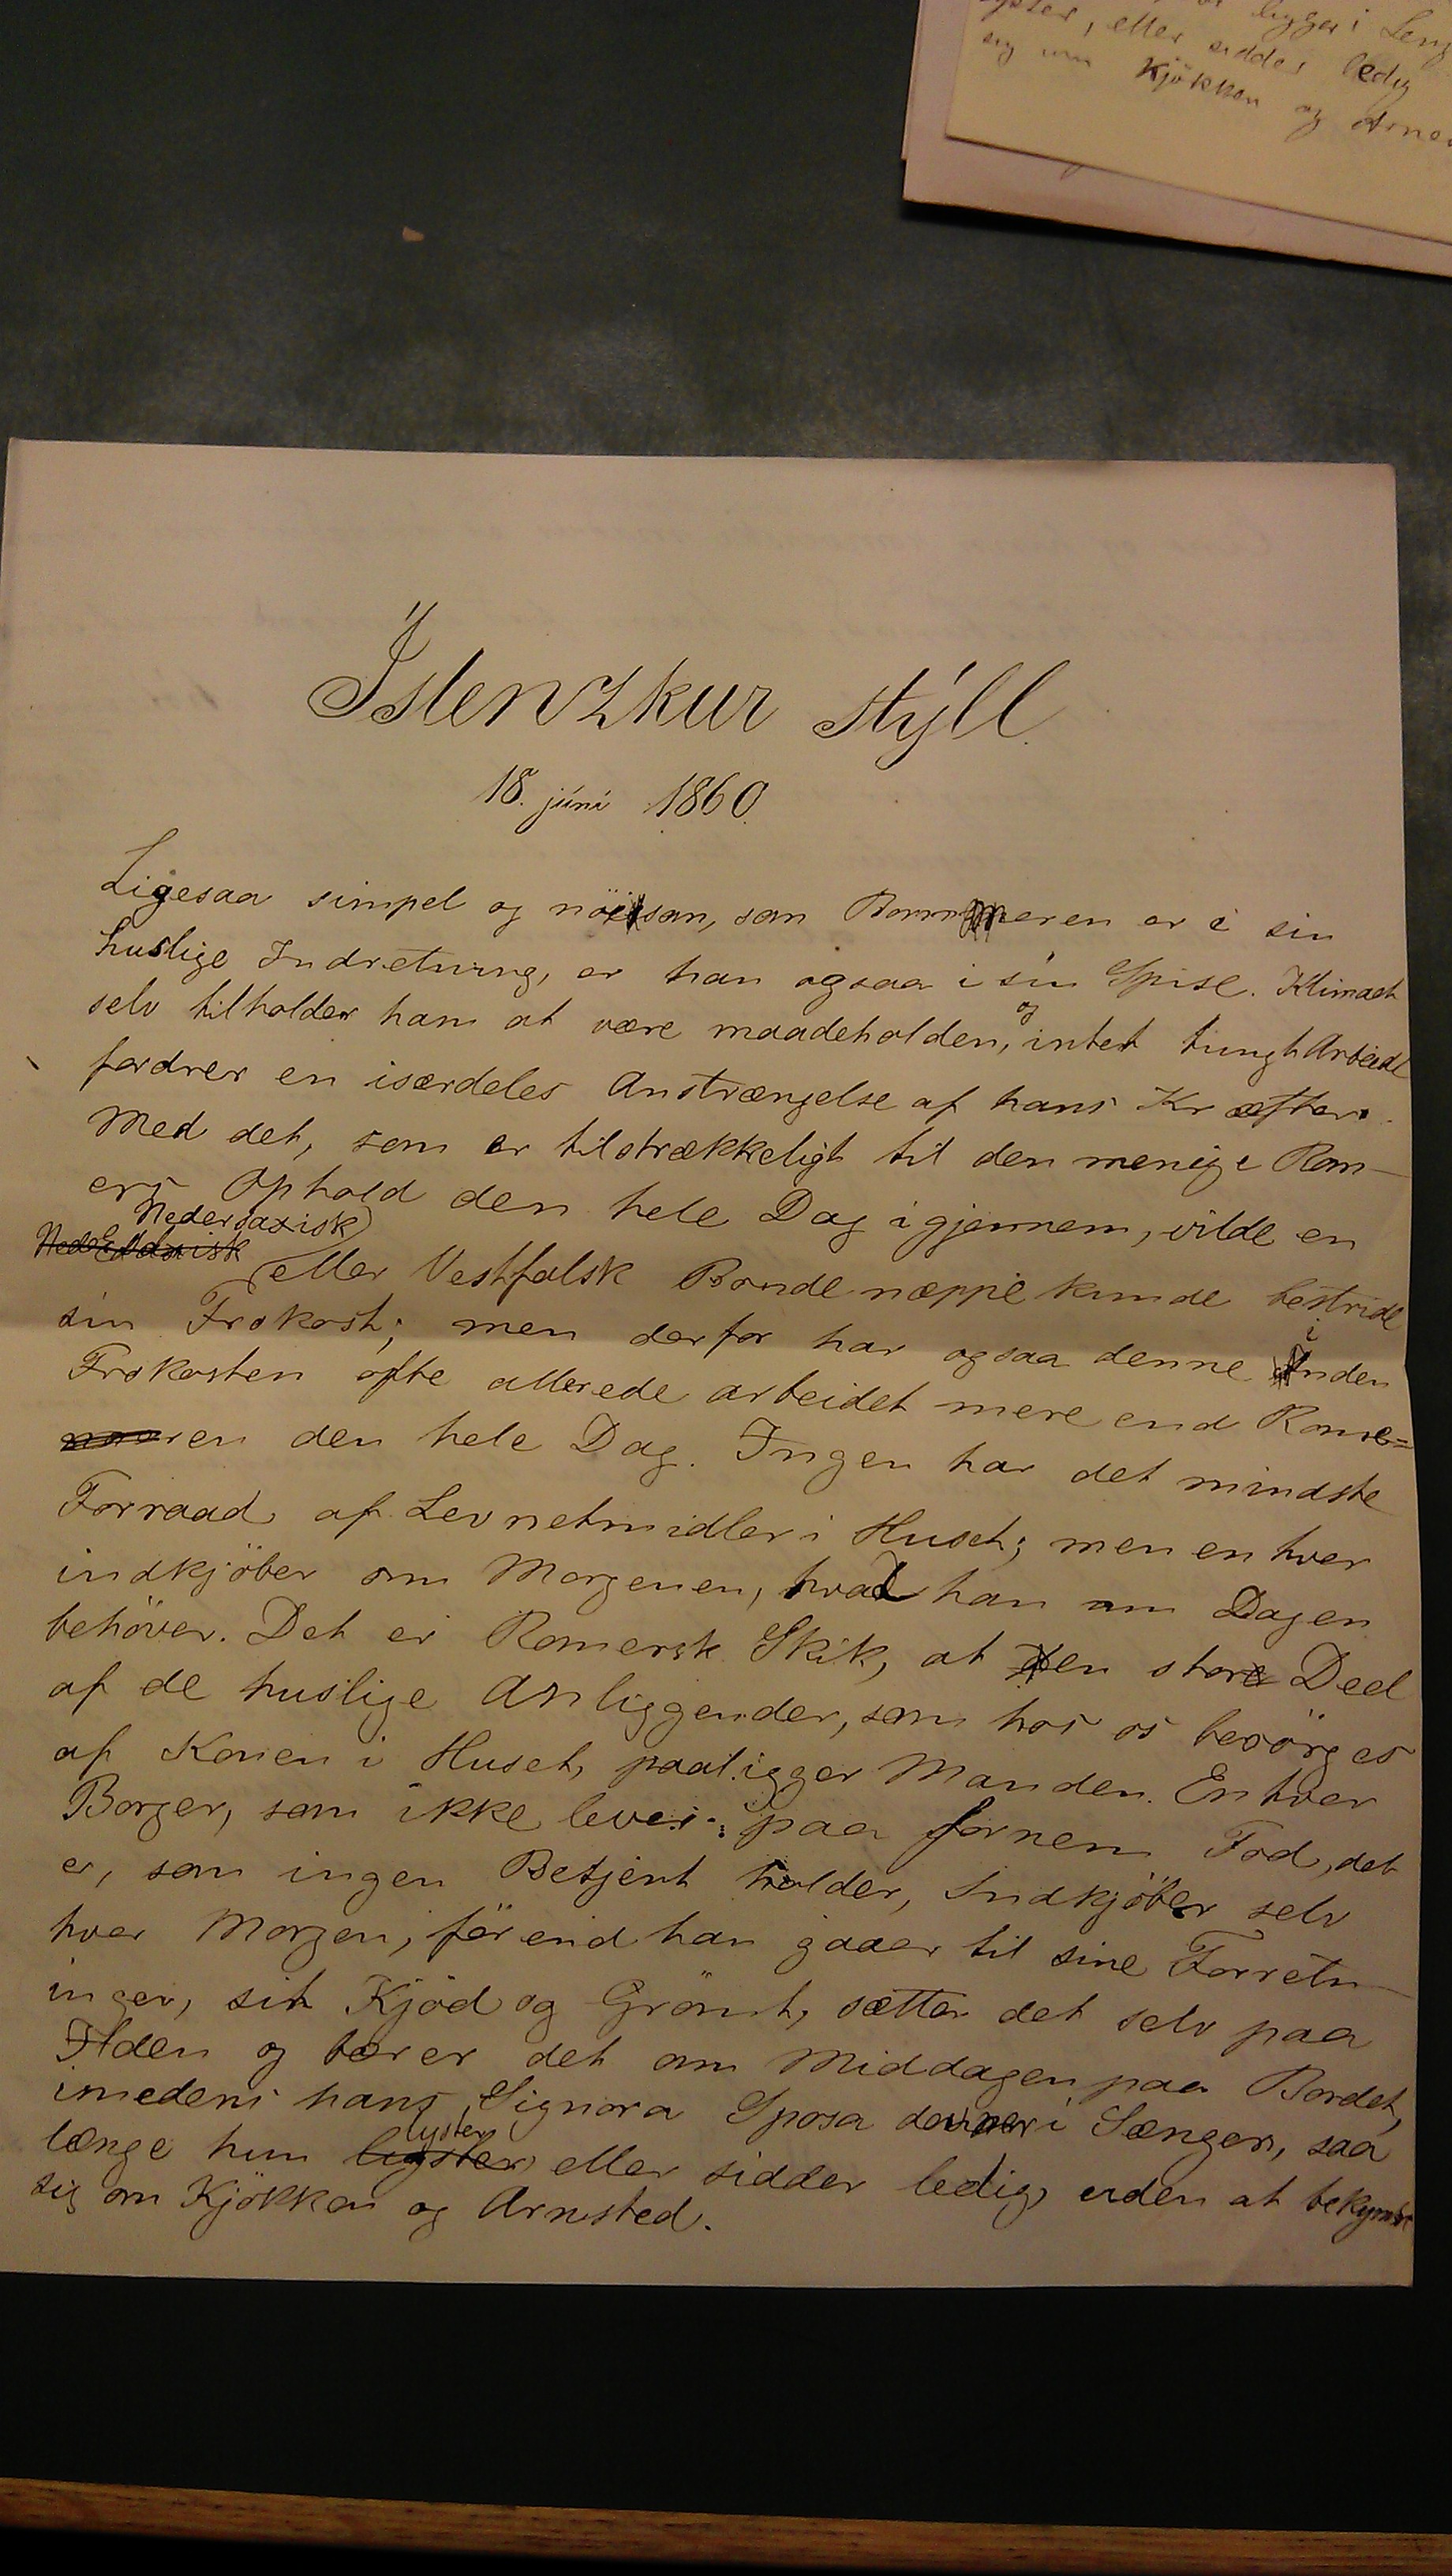 ligger i Leng
lyster, eller sidder ledig
sig um Kjökken og Arne
Íslenzkur stýll.
18. júní 1860.
Ligesaa simpel og nöisom, som Romeren er i sin
huslige Indretning, er han ogsaa i sin Spise. Klimaet
selv tilholder ham at være maadeholden, og intet tungt Arbeide
fordrer en isærdeles Anstrængelse af hans Kræfter.
Med det, som er tilstrækkeligt til den menige Rom-
ers Ophold den hele Dag igjennem, vilde en
Nedersaxisk
eller Vestfalsk Bonde næppe kunde bestride
sin Frokost; men derfor har ogsaa denne inden
Frokosten ofte allerede arbeidet mere end Rome=
ren den hele Dag. Ingen har det mindste
Forraad af Levnetmidler i Huset; men enhver
indkjöber om Morgenen, hvad han om Dagen
behöver. Det er Romersk Skik, at en store Deel
af de huslige Anliggender, som hos os besörges
af Konen i Huset, paaligger Manden. Enhver
Borger, som ikke lever paa fornem Fod, det
er, som ingen Betjent holder, Indkjöber selv
hver Morgen, förend han gaaer til sine Forretn-
inger, sit Kjöd og Grönt, sætter det selv paa
Ilden og bærer det om Middagen paa Bordet,
imedens hans Signora Sposa dovner i Sængen, saa
længe hun lyster eller sidder ledig, uden at bekymre
sig om Kjökken og Arnsted.